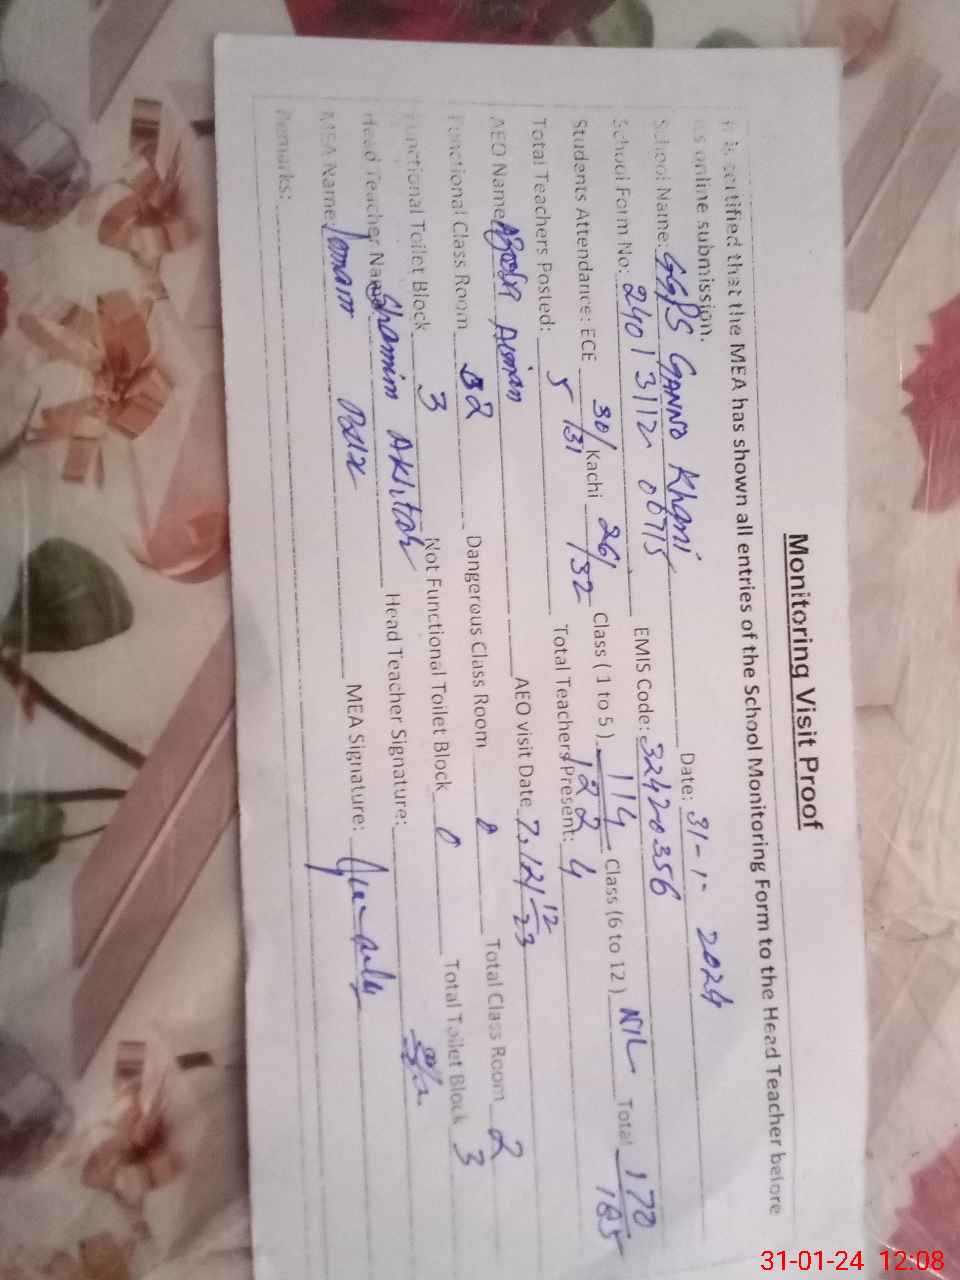 Monitoring Visit Proof
It is certified that the MEA has shown all entries of the School Monitoring Form to the Head Teacher before
its online submission.
School Name: GGPS GANNO Khani Date: 31-1-2024
School Form No: 240131120 06715 EMIS Code: 32420356
Students Attendance: ECE 30/31 Kachi 26/32 Class ( 1 to 5 ) 114/122 Class (6 to 12 ) NIL Total 170/185
Total Teachers Posted: 5 Total Teachers Present: 4
AEO Name: AEO visit Date
Functional Class Room 2 Dangerous Class Room 0 Total Class Room 2
Functional Toilet Block 3 Not Functional Toilet Block 0 Total Toilet Block 3
Head Teacher Name Shamim Akhtar Head Teacher Signature:
MEA Name: Imam MEA Signature:
Remarks:
31-01-24 12:08